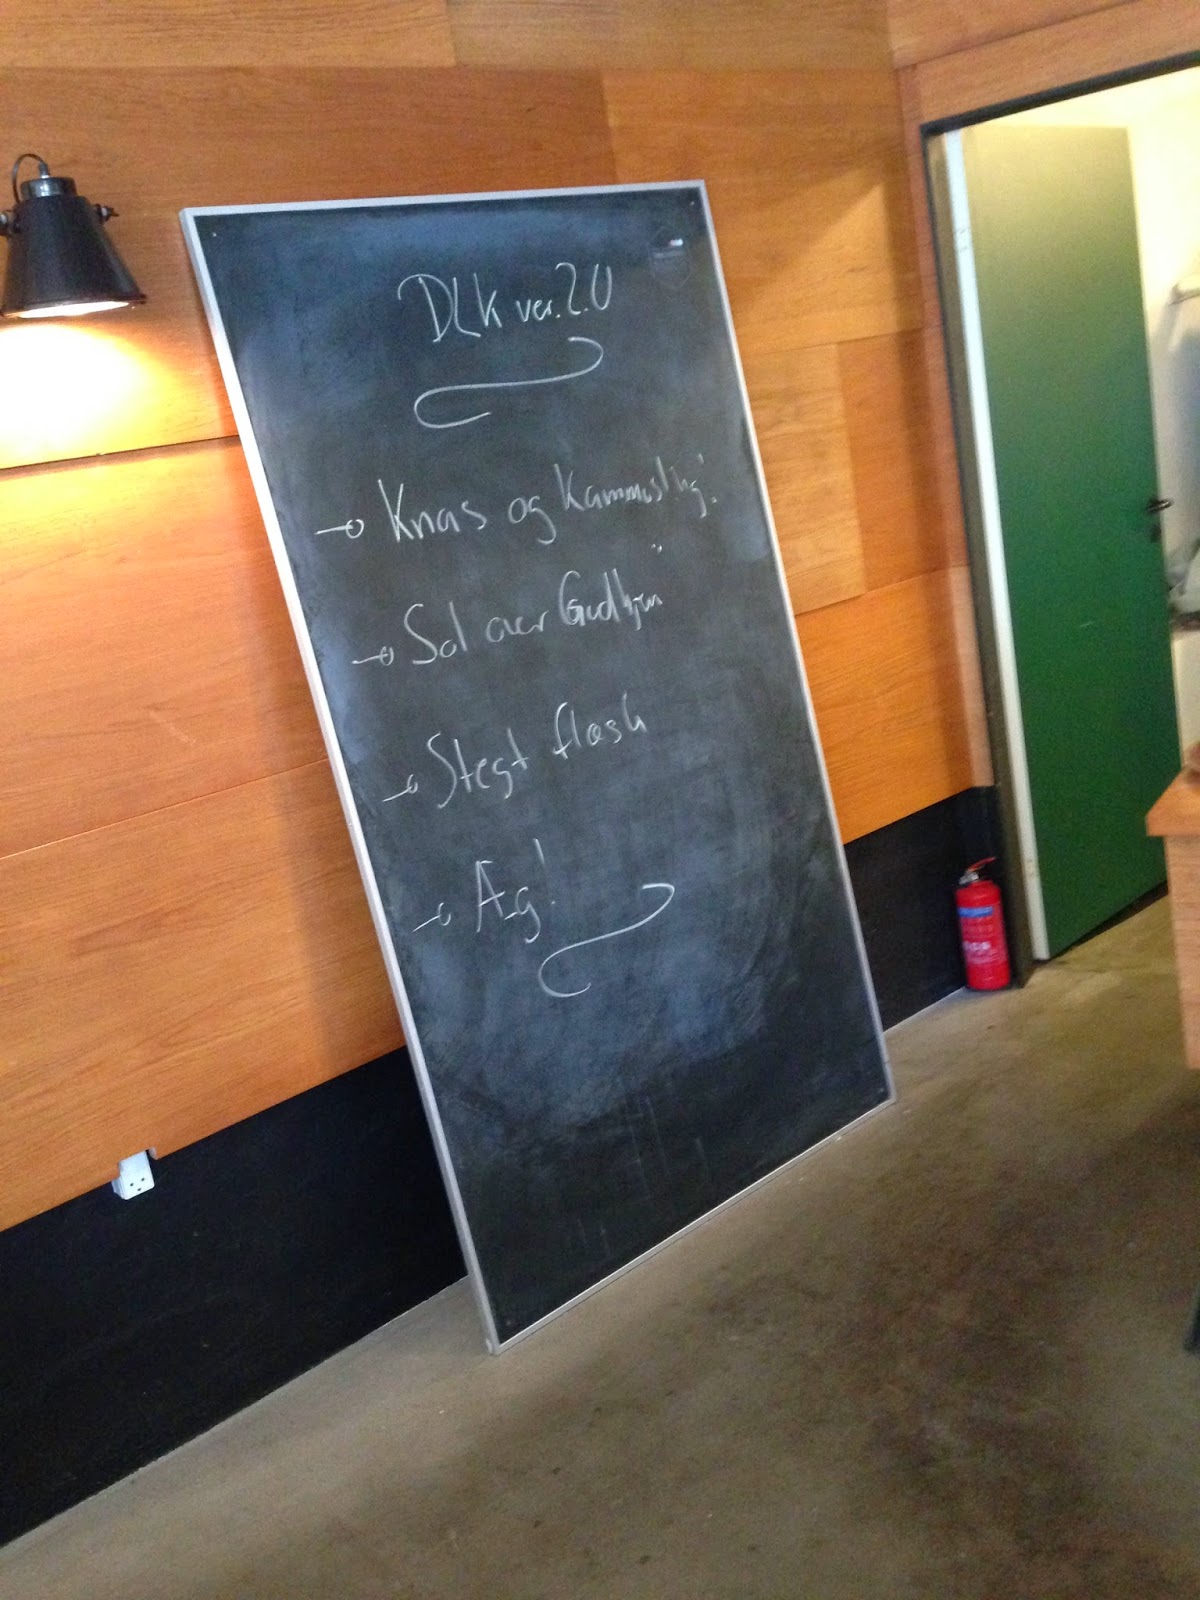 DLK ver. 2.0
Knas og Kammusling!
Sol over Gudhjem
Stegt flæsk
Æg!